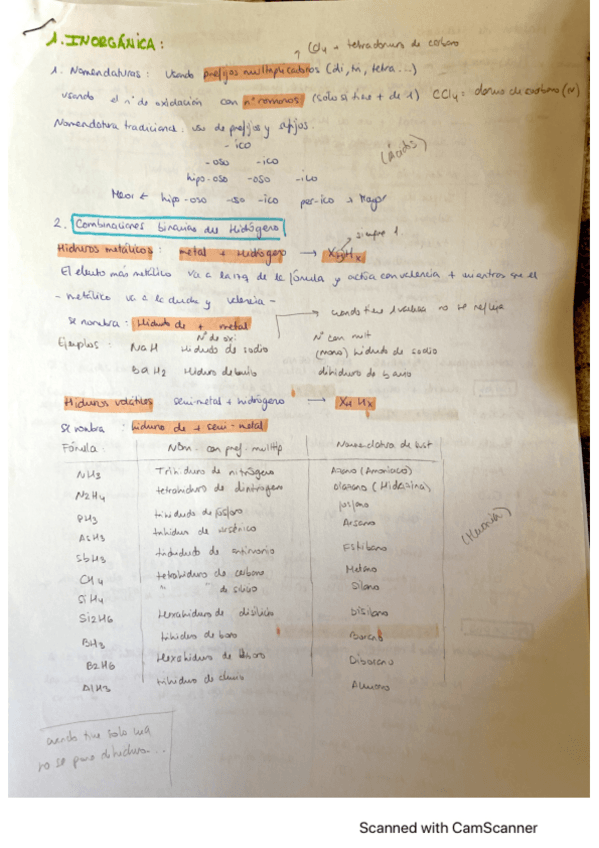 CCl4 → tetracloruro de carbono
1. INORGÁNICA:
1. Nomenclaturas: Usando prefijos multiplicadores (di, tri, tetra...)
usando el nº de oxidación con nº romanos (solo si tiene + de 1) CCl4: cloruro de carbono (IV)
Nomenclatura tradicional: uso de prefijos y sufijos.
- ico
(Ácidos)
- oso - ico
hipo-oso -oso -ico
Menor ← hipo-oso -oso -ico per-ico → Mayor
2. Combinaciones binarias del Hidrógeno
siempre 1.
Hidruros metálicos: metal + Hidrógeno → XHHX
El elemento más metálico va a la izq de la fórmula y actúa con valencia + mientras que el
- metálico va a la derecha y valencia -
cuando tiene 1 valencia no se refleja
Se nombra: Hidruro de + metal
Nº de oxi: Nº con mult
Ejemplos: NaH Hidruro de sodio (mono) hidruro de sodio
BaH2 Hidruro de bario dihidruro de bario
Hidruros volátiles semi-metal + hidrógeno → XHHX
Se nombra: hidruro de + semi-metal
Fórmula Nom. con pref. multip Nomenclatura de sust
NH3 Trihidruro de nitrógeno Azano (Amoniaco)
N2H4 tetrahidruro de dinitrógeno diazano (Hidrazina)
PH3 trihidruro de fósforo fosfano
AsH3 trihidruro de arsénico Arsano
(Memoria)
SbH3 trihidruro de antimonio Estibano
CH4 tetrahidruro de carbono Metano
SiH4 " de silicio Silano
Si2H6 Hexahidruro de disilicio Disilano
BH3 trihidruro de boro Borano
B2H6 Hexahidruro de diboro Diborano
AlH3 trihidruro de Alumano
cuando tiene solo una
no se pone dihidruro...
Scanned with CamScanner